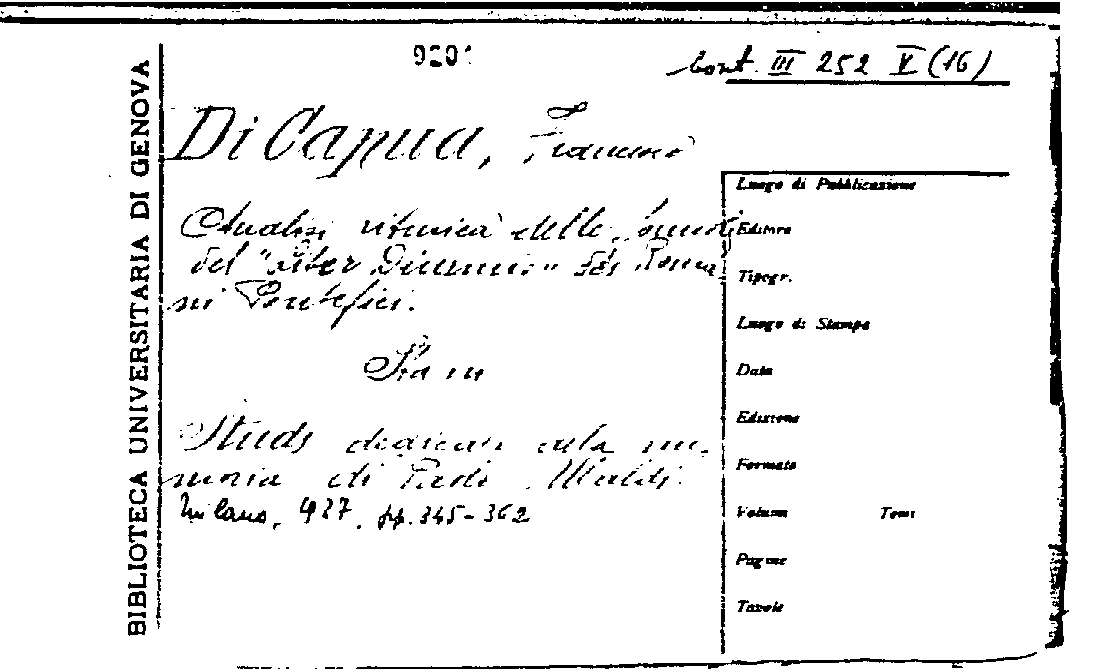 BIBLIOTECA UNIVERSITARIA DI GENOVA
9201
Cont. III 252 V (16)
Di Capua, Francesco
Analisi ritmica delle formole
del "Liber Diurnus" dei Roma
ni Pontefici.
Sta in
Studi dedicati alla me-
moria di Paolo Ubaldi.
Milano, 937, pp. 345-362
Luogo di Pubblicazione
Editore
Tipogr.
Luogo di Stampa
Data
Edizione
Formato
Volumi Tomi
Pagine
Tavole